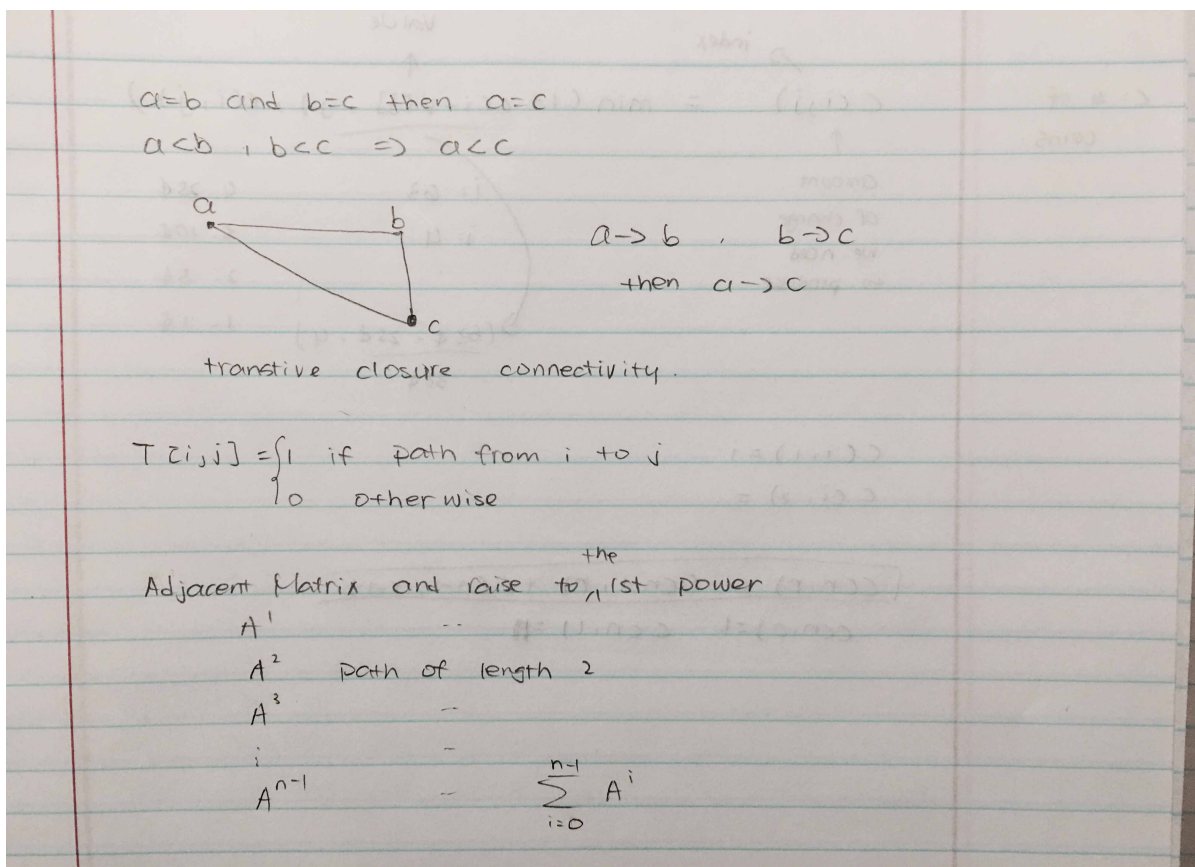 a=b and b=c then a=c
a<b , b<c => a<c
a
b
a->b , b->c
then a->c
c
transtive closure connectivity.
T[i,j] = { 1 if path from i to j
0 otherwise
the
Adjacent Matrix and raise to ^ 1st power
A¹ --
A² path of length 2
A³ -
⋮ -
Aⁿ⁻¹ - n-1
∑ Aⁱ
i=0